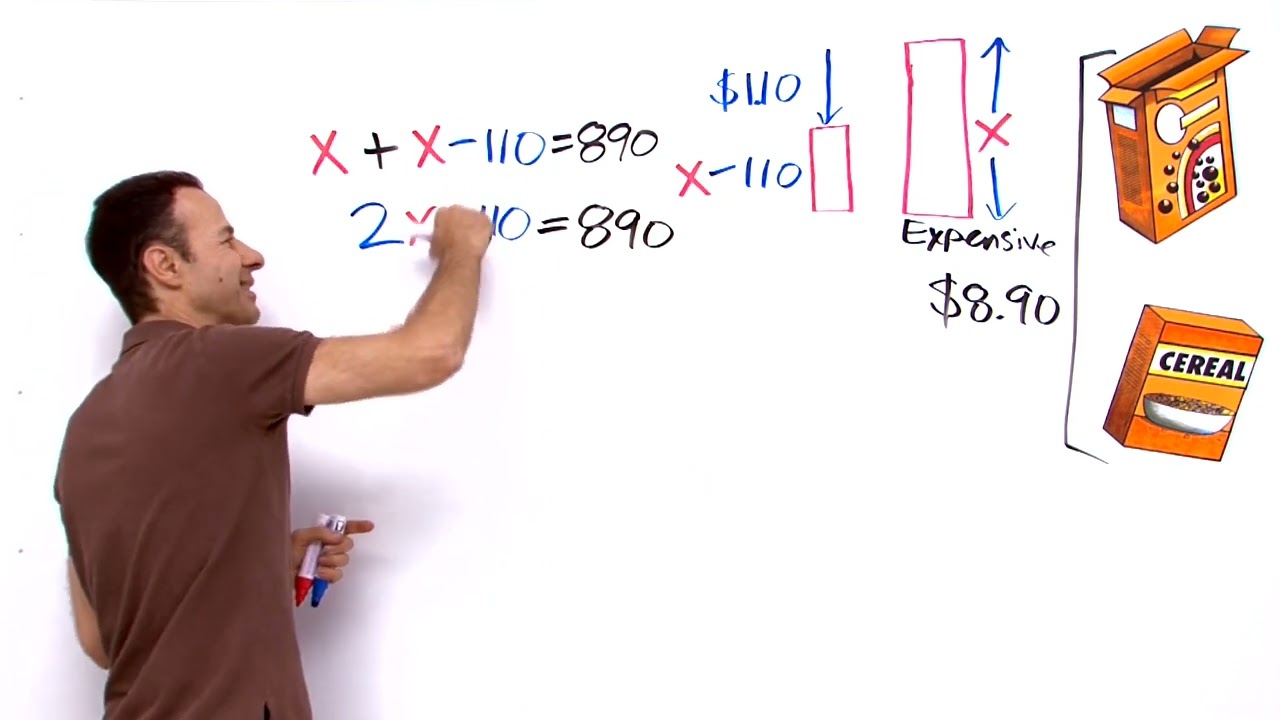 x + x-110=890
2x-110 = 890
$1.10
x-110
x
Expensive
$8.90
CEREAL